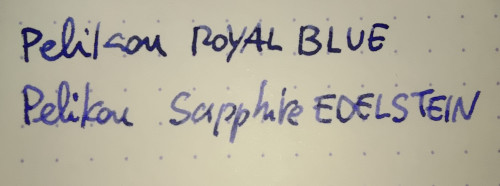 Pelikan ROYAL BLUE
Pelikan Sapphire EDELSTEIN